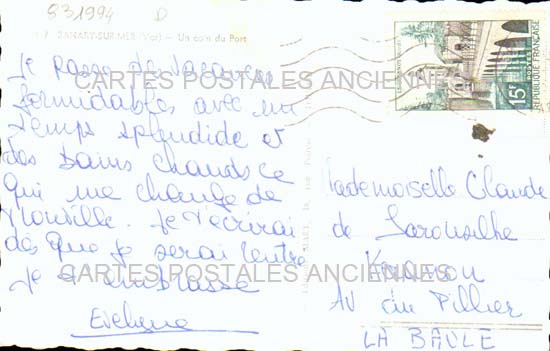 831994 D
7 SANARY-SUR-MER (Var) — Un coin du Port
Je passe de vacances
formidables avec un
temps splendide et
des bains chauds ce
qui me change de
Je t'écrirai
dès que je serai rentré
Je t'embrasse
Evelyne
Mademoiselle Claude
de
AV du Pillier
LA BAULE
15F
POSTES
REPUBLIQUE FRANÇAISE
CARTES POSTALES ANCIENNES
CARTES POSTALES ANCIENNES